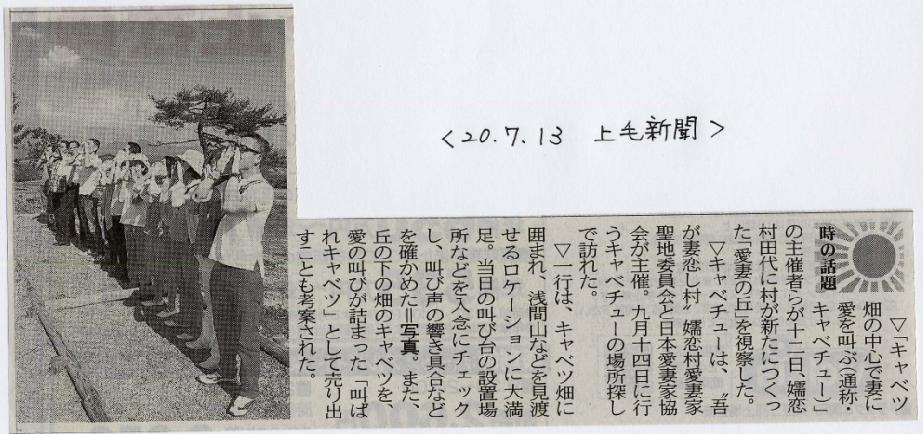 <20.7.13 上毛新聞>
時の話題
▽「キャベツ
畑の中心で妻に
愛を叫ぶ(通称・
キャベチュー)」
の主催者らが十二日、嬬恋
村田代に村が新たにつくっ
た「愛妻の丘」を視察した。
▽キャベチューは、〝吾
が妻恋し村〟嬬恋村愛妻家
聖地委員会と日本愛妻家協
会が主催。九月十四日に行
うキャベチューの場所探し
で訪れた。
▽一行は、キャベツ畑に
囲まれ、浅間山などを見渡
せるロケーションに大満
足。当日の叫び台の設置場
所などを入念にチェック
し、叫び声の響き具合など
を確かめた=写真。また、
丘の下の畑のキャベツを
愛の叫びが詰まった「叫ば
れキャベツ」として売り出
すことも考案された。